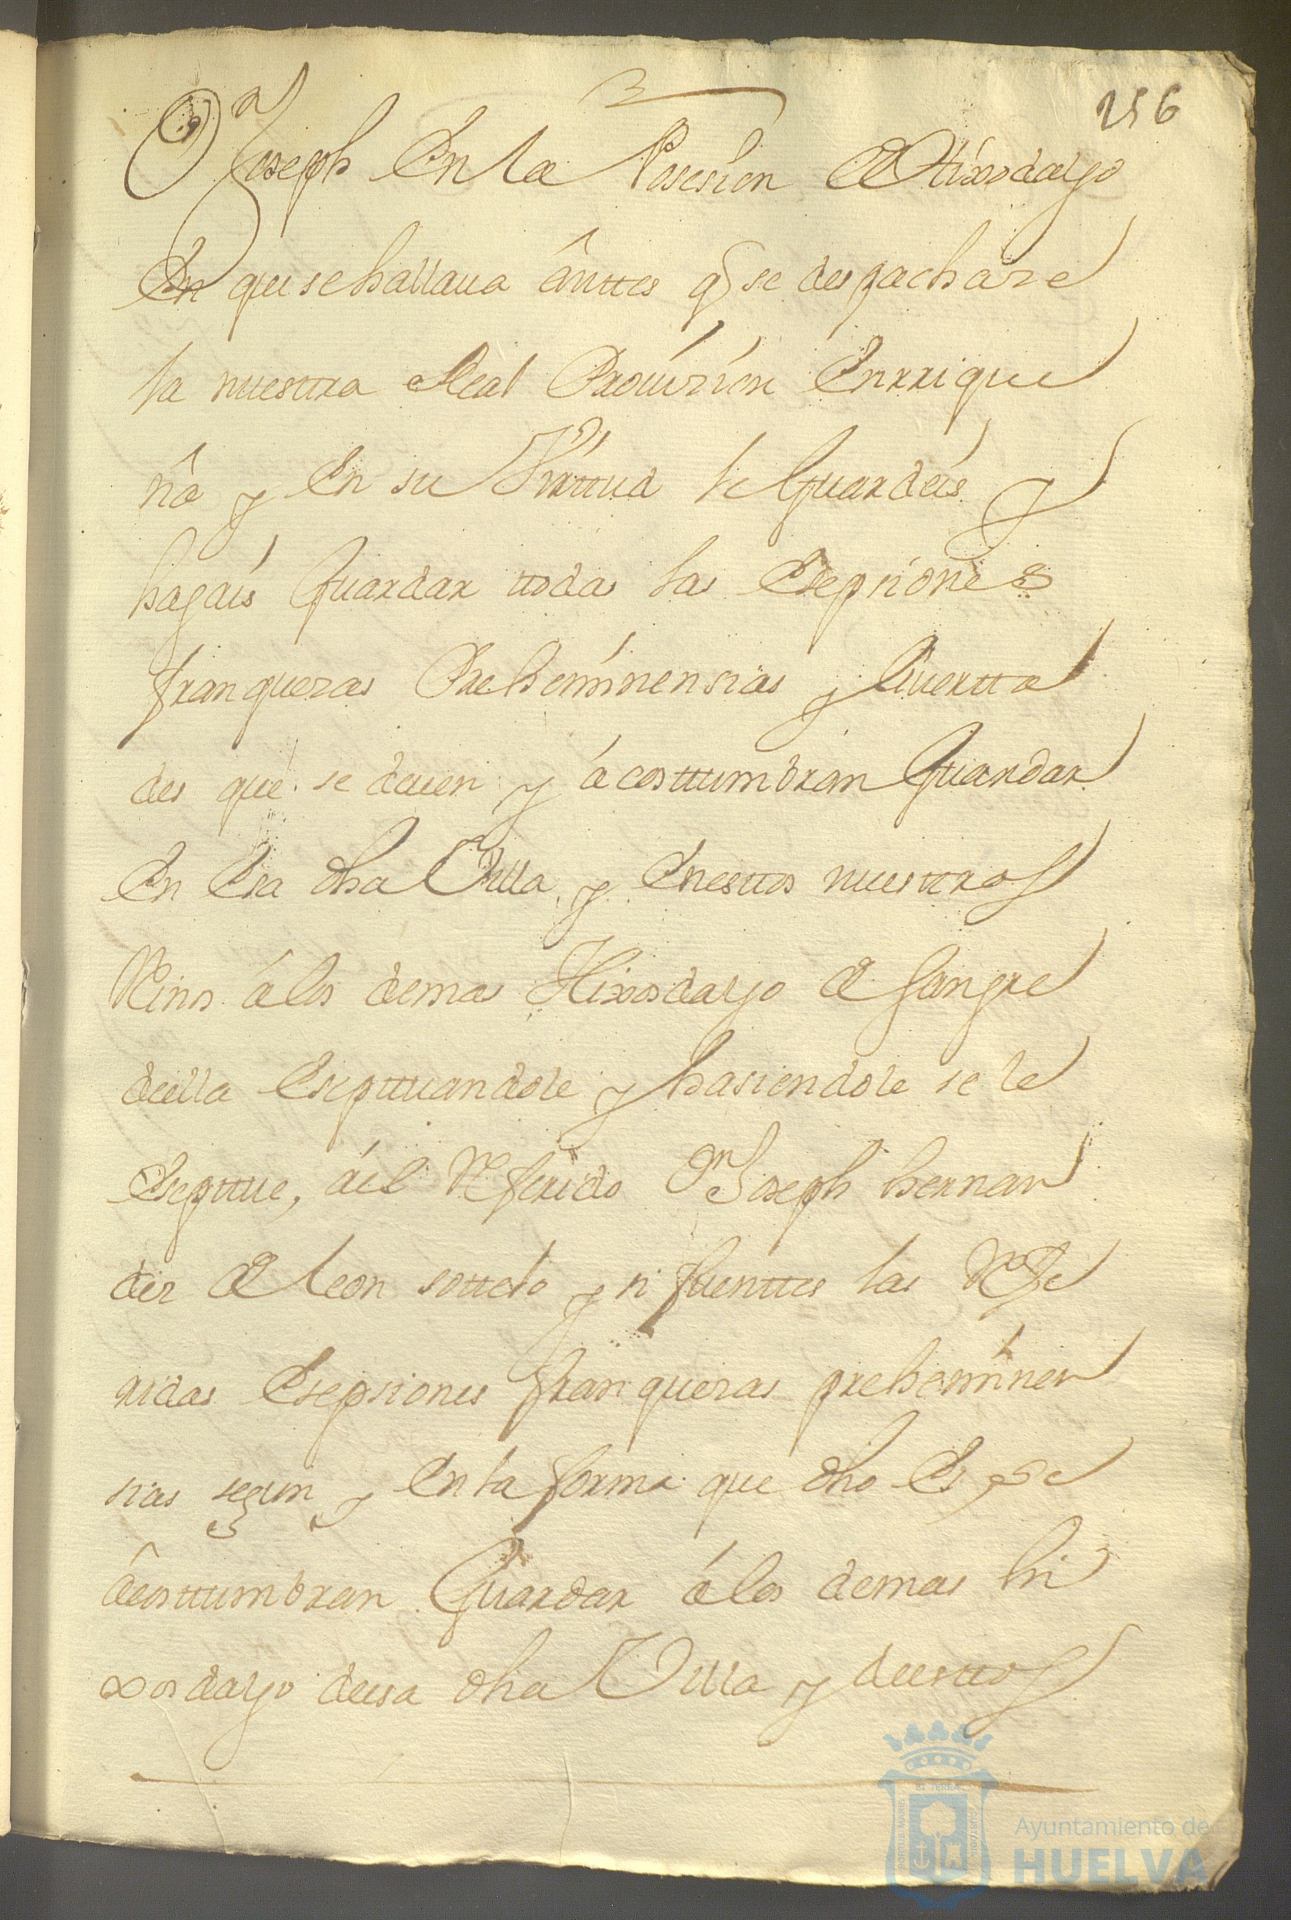 256
Dn Joseph En la Posesion de Hixodalgo
En que se hallaua ânttes q se despachare
la nuesttra Real Prouizion Enrrique
ña y En su Virttud le Guardeis y
hagais Guardar ttodas las Esepsiones
franquezas Preheminensias y liuertta
des que se deuen y ácosttumbran Guardar
En Esa dha Villa y Enesttos nuesttros
Reinos álos demas Hixosdalgo de sangre
deella Esepttuandole y hasiendole se le
Esepttue, áel Referido Dn Joseph hernan
dez de leon sottelo y zifuenttes las Refe
ridas Esepsiones franquezas preheminen
sias segun y Enla forma que dho Es y se
âcosttumbran Guardar álos demas hi
xosdalgo deesa dha Villa y deesttos
Ayuntamiento de
HUELVA